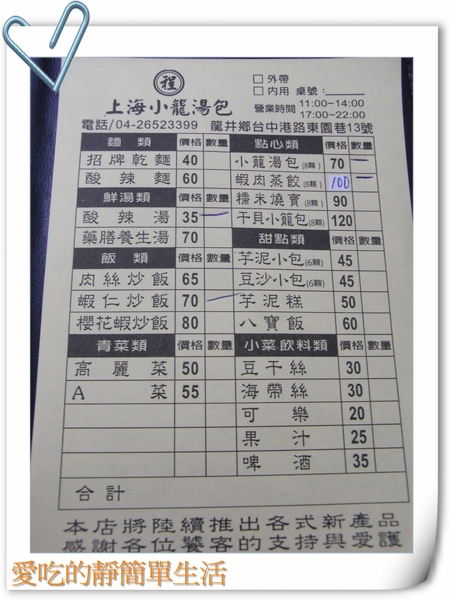 程
上海小籠湯包
□外帶
□內用 桌號：
營業時間 11:00~14:00
17:00~22:00
電話/04-26523399 龍井鄉台中港路東園巷13號
麵類 價格 數量 點心類 價格 數量
招牌乾麵 40 小籠湯包(8顆) 70 一
酸辣麵 60 蝦肉蒸餃(8顆) 100 一
鮮湯類 價格 數量 糯米燒賣(8顆) 90
酸辣湯 35 一 干貝小籠包(8顆) 120
藥膳養生湯 70 甜點類 價格 數量
飯類 價格 數量 芋泥小包(6顆) 45
肉絲炒飯 65 豆沙小包(6顆) 45
蝦仁炒飯 70 一 芋泥糕 50
櫻花蝦炒飯 80 八寶飯 60
青菜類 價格 數量 小菜飲料類 價格 數量
高麗菜 50 豆干絲 30
A菜 55 海帶絲 30
可樂 20
果汁 25
啤酒 35
合計
本店將陸續推出各式新產品
感謝各位饕客的支持與愛護
愛吃的靜簡單生活